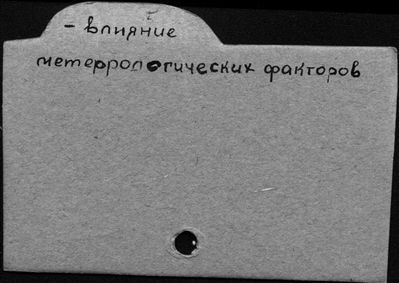 - влияние
метеррологических факторов